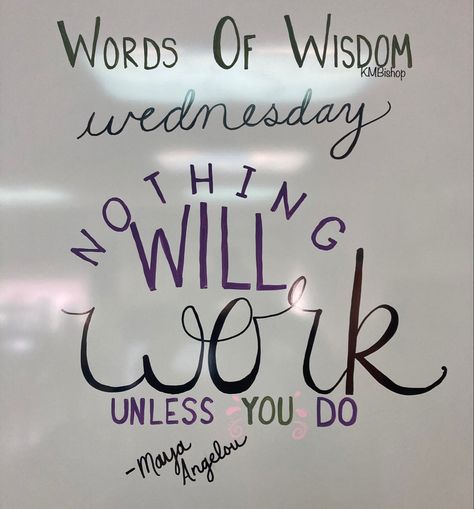 WORDS OF WISDOM
KMBishop
wednesday
NOTHING
WILL
work
UNLESS YOU DO
-Maya
Angelou